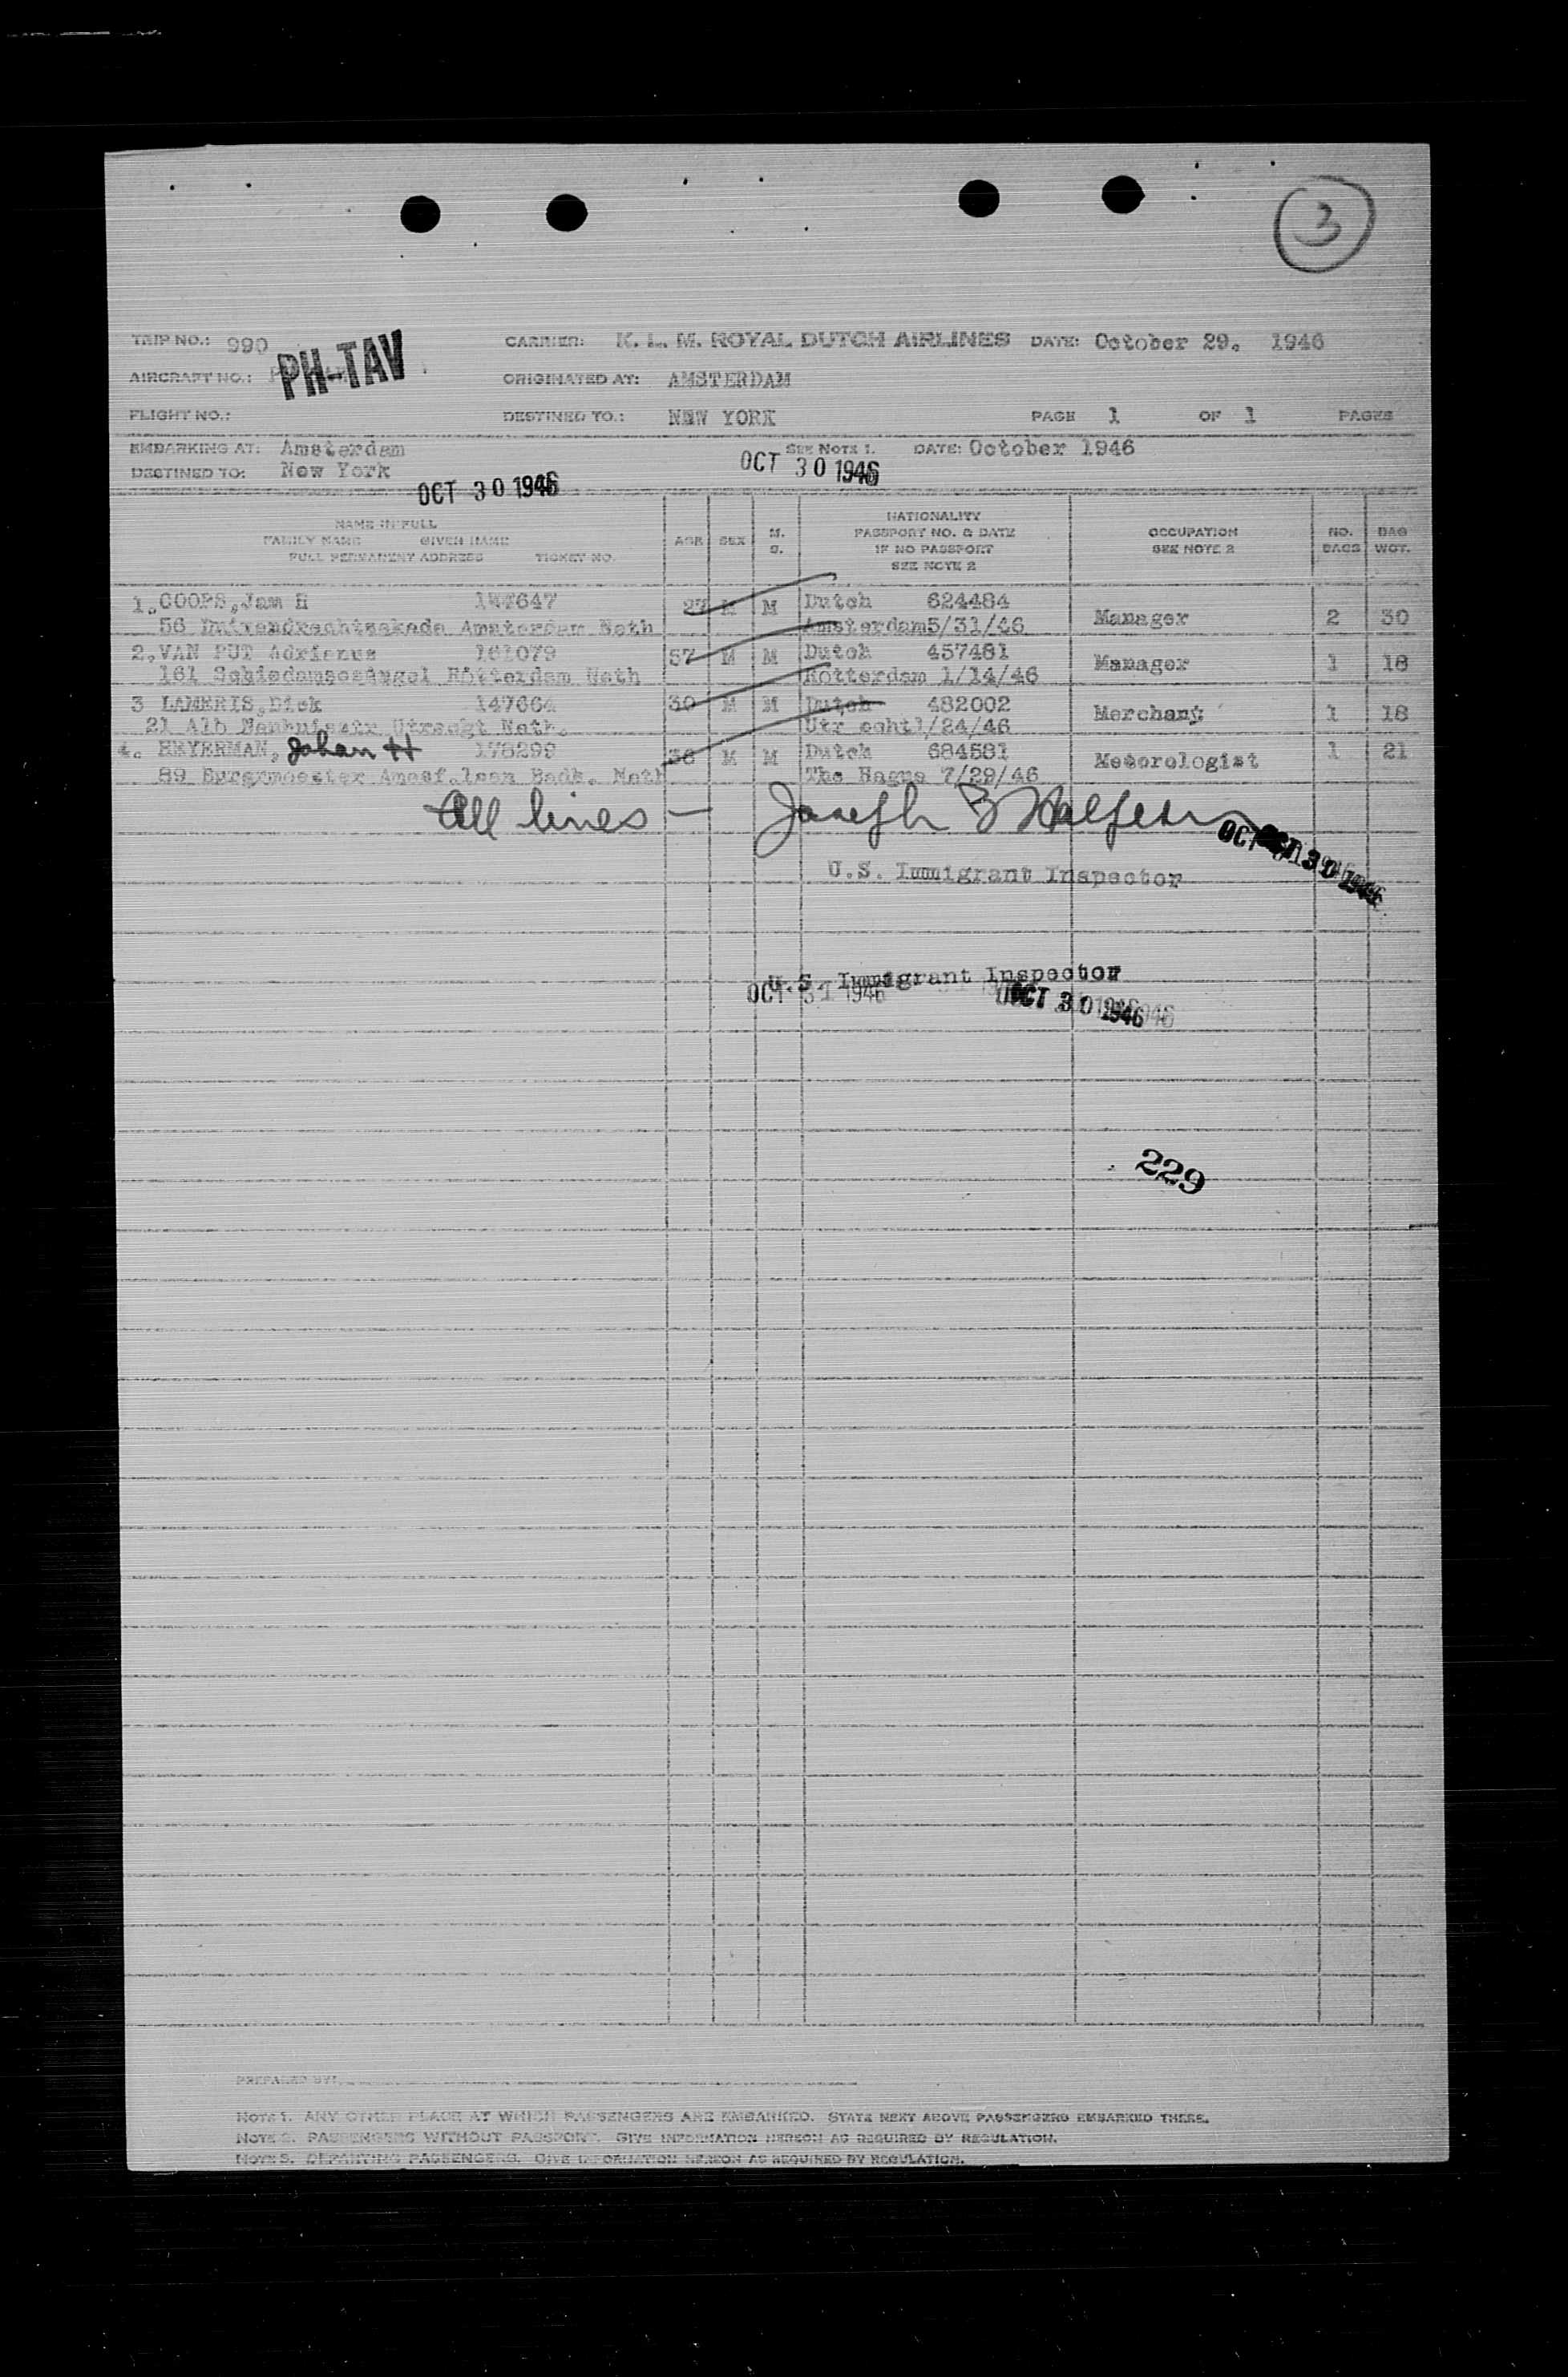 3
TRIP NO.: 990 CARRIER: K. L. M. ROYAL DUTCH AIRLINES DATE: October 29. 1946
AIRCRAFT NO.: PH-TAV ORIGINATED AT: AMSTERDAM
FLIGHT NO.: DESTINED TO.: NEW YORK PAGE 1 OF 1 PAGES
EMBARKING AT: Amsterdam SEE NOTE 1. DATE: October 1946
DESTINED TO: New York OCT 30 1946
OCT 30 1946
NAME IN FULL
FAMILY NAME GIVEN NAME
FULL PERMANENT ADDRESS TICKET NO.
AGE SEX M. S.
NATIONALITY
PASSPORT NO. & DATE
IF NO PASSPORT
SEE NOTE 2
OCCUPATION
SEE NOTE 2
NO. BAGS
BAG WGT.
1. COOPS, Jam H 647 27 M M Dutch 624484 Manager 2 30
56 Amsterdam Neth Amsterdam 5/31/46
2. VAN PUT Adrianus 161079 57 M M Dutch 457481 Manager 1 18
161 Rotterdam Neth Rotterdam 1/14/46
3 LAMERIS, Dick 147664 30 M M Dutch 482002 Merchant 1 18
21 Alb Neth. Utr echt1/24/46
4. HEYERMAN, Johan H 178299 36 M M Dutch 684581 Meteorologist 1 21
89 Badh. Neth The Hague 7/29/46
All lines — Joseph
OCT 30 1946
U.S. Immigrant Inspector
U.S. Immigrant Inspector
OCT 31 1946 OCT 30 1946
229
PREPARED BY:
NOTE 1. ANY OTHER PLACE AT WHICH PASSENGERS ARE EMBARKED. STATE NEXT ABOVE PASSENGERS EMBARKED THERE.
NOTE 2. PASSENGERS WITHOUT PASSPORT. GIVE INFORMATION HEREON AS REQUIRED BY REGULATION.
NOTE 3. DEPARTING PASSENGERS. GIVE INFORMATION HEREON AS REQUIRED BY REGULATION.